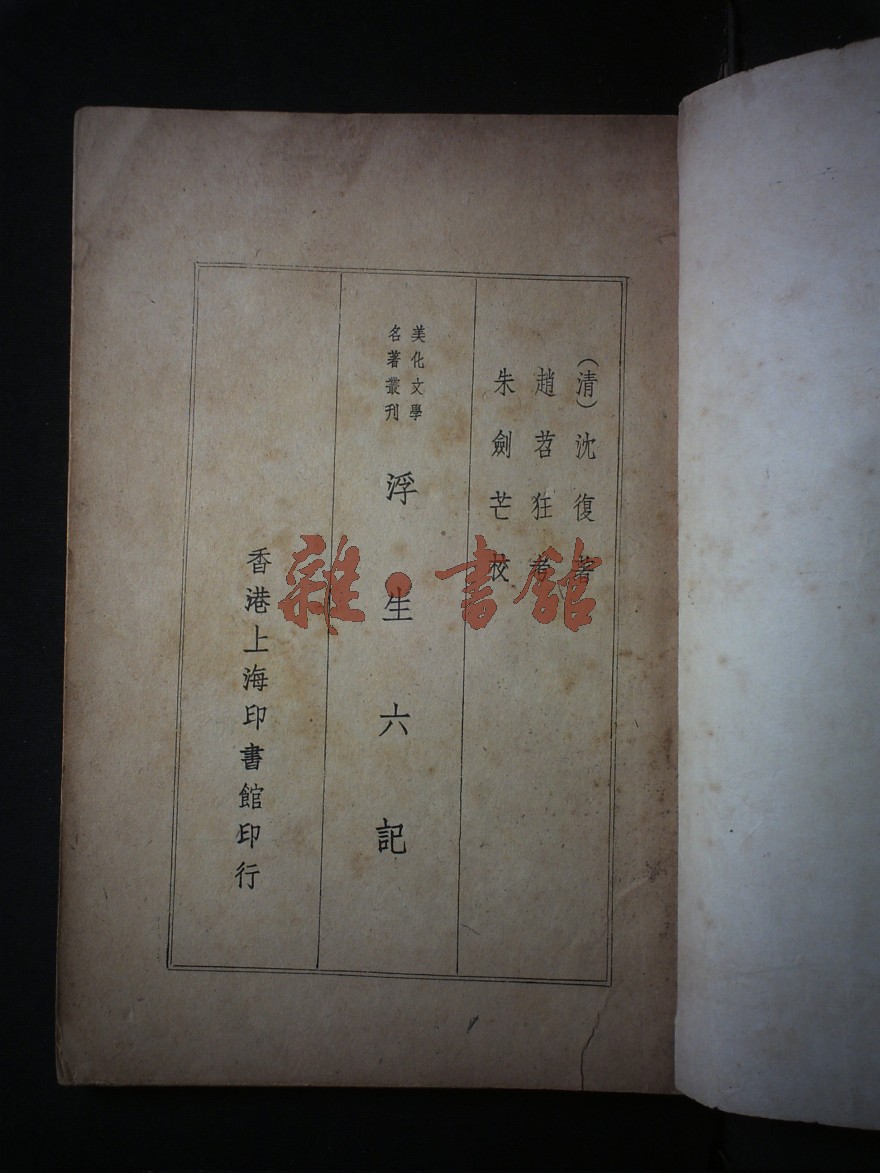 （清）沈復著
趙苕狂考
朱劍芒校
美化文學
名著叢刊
浮生六記
香港上海印書館印行
雜·書館